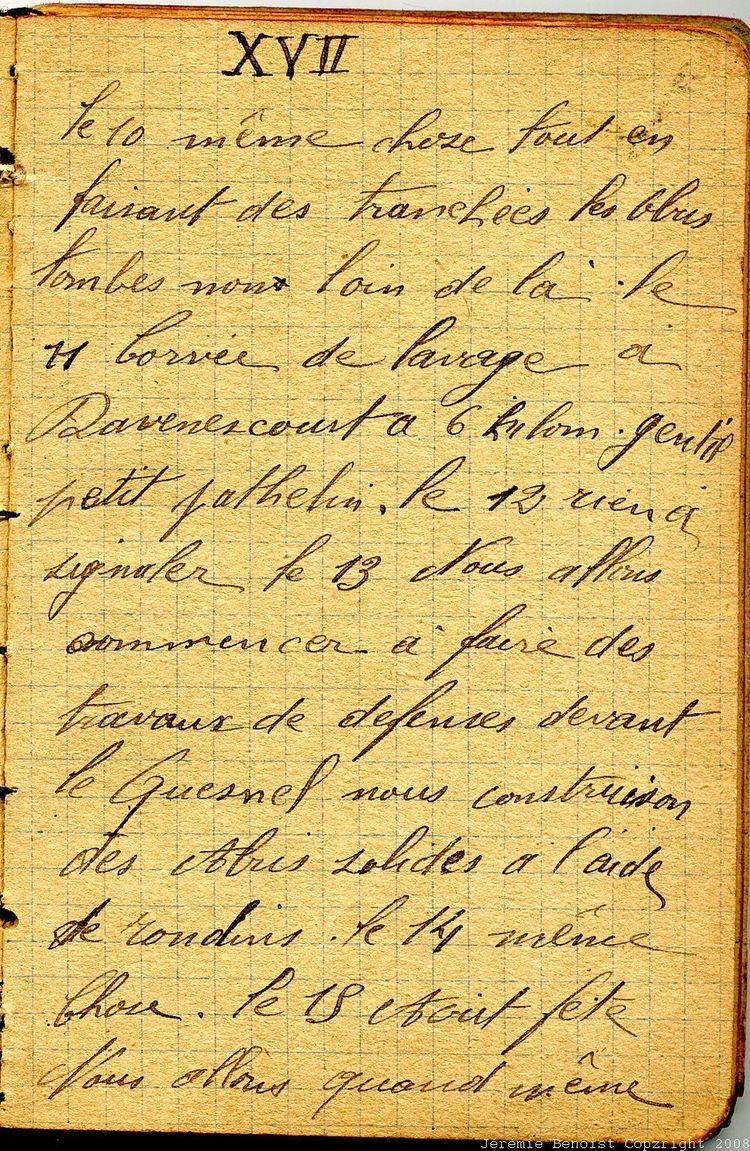 XVII
le 10 même chose tout en
faisant des tranchées les Obus
tombes non loin de là . le
11 Corvée de lavage a
Davenescourt a 6 kilom. gentil
petit pathelin. le 12 rien à
signaler le 13 Nous allons
commencer à faire des
travaux de defenses devant
le Quesnel nous construison
des Abris solides a l'aide
de rondins . le 14 même
Chose . le 15 Aout fête
Nous allons quand même
Jeremie Benoist Copzright 2008